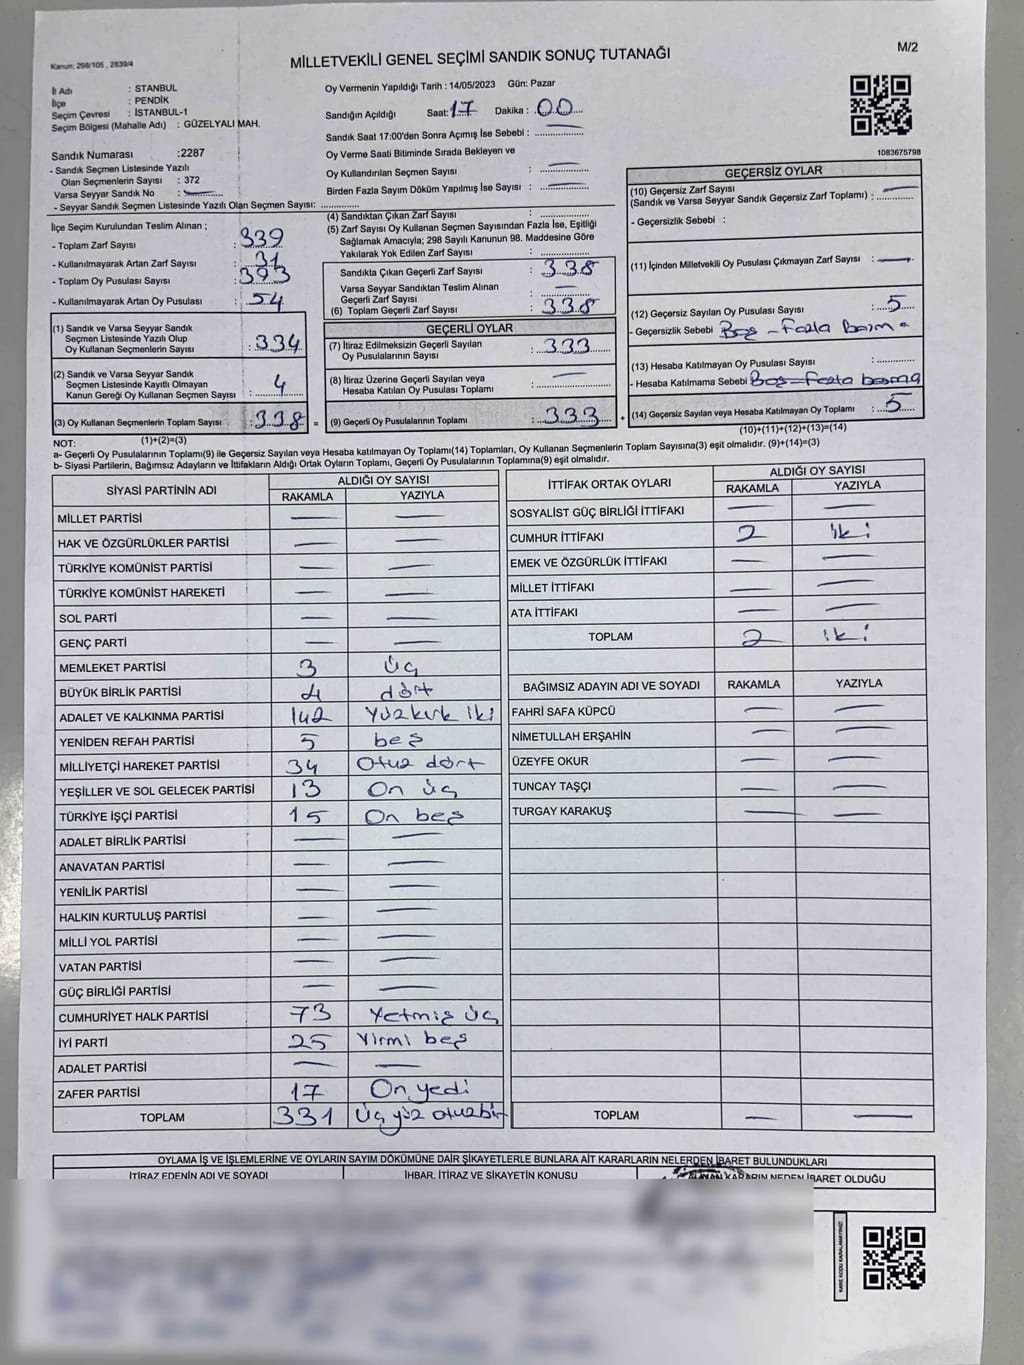 Kanun: 298/105 , 2839/4
MİLLETVEKİLİ GENEL SEÇİMİ SANDIK SONUÇ TUTANAĞI
M/2
İl Adı : STANBUL
İlçe : PENDİK
Seçim Çevresi : İSTANBUL-1
Seçim Bölgesi (Mahalle Adı) : GÜZELYALI MAH.
Sandık Numarası :2287
- Sandık Seçmen Listesinde Yazılı
Olan Seçmenlerin Sayısı : 372
Varsa Seyyar Sandık No :
- Seyyar Sandık Seçmen Listesinde Yazılı Olan Seçmen Sayısı: ............
Oy Vermenin Yapıldığı Tarih : 14/05/2023 Gün: Pazar
Sandığın Açıldığı Saat: 17 Dakika : 00
Sandık Saat 17:00'den Sonra Açımış İse Sebebi :
Oy Verme Saati Bitiminde Sırada Bekleyen ve
Oy Kullandırılan Seçmen Sayısı :
Birden Fazla Sayım Döküm Yapılmış İse Sayısı :
1083675798
İlçe Seçim Kurulundan Teslim Alınan ;
- Toplam Zarf Sayısı : 339
- Kullanılmayarak Artan Zarf Sayısı : 31
- Toplam Oy Pusulası Sayısı : 393
- Kullanılmayarak Artan Oy Pusulası : 54
(1) Sandık ve Varsa Seyyar Sandık
Seçmen Listesinde Yazılı Olup
Oy Kullanan Seçmenlerin Sayısı : 334
(2) Sandık ve Varsa Seyyar Sandık
Seçmen Listesinde Kayıtlı Olmayan
Kanun Gereği Oy Kullanan Seçmen Sayısı : 4
(3) Oy Kullanan Seçmenlerin Toplam Sayısı : 338 =
(1)+(2)=(3)
(4) Sandıktan Çıkan Zarf Sayısı :
(5) Zarf Sayısı Oy Kullanan Seçmen Sayısından Fazla İse, Eşitliği
Sağlamak Amacıyla; 298 Sayılı Kanunun 98. Maddesine Göre
Yakılarak Yok Edilen Zarf Sayısı :
Sandıkta Çıkan Geçerli Zarf Sayısı : 338
Varsa Seyyar Sandıktan Teslim Alınan
Geçerli Zarf Sayısı :
(6) Toplam Geçerli Zarf Sayısı : 338
GEÇERLİ OYLAR
(7) İtiraz Edilmeksizin Geçerli Sayılan
Oy Pusulalarının Sayısı : 333
(8) İtiraz Üzerine Geçerli Sayılan veya
Hesaba Katılan Oy Pusulası Toplamı :
(9) Geçerli Oy Pusulalarının Toplamı : 333 +
GEÇERSİZ OYLAR
(10) Geçersiz Zarf Sayısı
(Sandık ve Varsa Seyyar Sandık Geçersiz Zarf Toplamı) :
- Geçersizlik Sebebi :
(11) İçinden Milletvekili Oy Pusulası Çıkmayan Zarf Sayısı :
(12) Geçersiz Sayılan Oy Pusulası Sayısı : 5
- Geçersizlik Sebebi Boş - Fazla basma
(13) Hesaba Katılmayan Oy Pusulası Sayısı :
- Hesaba Katılmama Sebebi Boş - Fazla basma
(14) Geçersiz Sayılan veya Hesaba Katılmayan Oy Toplamı : 5
(10)+(11)+(12)+(13)=(14)
NOT:
a- Geçerli Oy Pusulalarının Toplamı(9) ile Geçersiz Sayılan veya Hesaba katılmayan Oy Toplamı(14) Toplamları, Oy Kullanan Seçmenlerin Toplam Sayısına(3) eşit olmalıdır. (9)+(14)=(3)
b- Siyasi Partilerin, Bağımsız Adayların ve İttifakların Aldığı Ortak Oyların Toplamı, Geçerli Oy Pusulalarının Toplamına(9) eşit olmalıdır.
SİYASİ PARTİNİN ADI ALDIĞI OY SAYISI
RAKAMLA YAZIYLA
MİLLET PARTİSİ
HAK VE ÖZGÜRLÜKLER PARTİSİ
TÜRKİYE KOMÜNİST PARTİSİ
TÜRKİYE KOMÜNİST HAREKETİ
SOL PARTİ
GENÇ PARTİ
MEMLEKET PARTİSİ 3 üç
BÜYÜK BİRLİK PARTİSİ 4 dört
ADALET VE KALKINMA PARTİSİ 142 Yüzkırk iki
YENİDEN REFAH PARTİSİ 5 beş
MİLLİYETÇİ HAREKET PARTİSİ 34 Otuz dört
YEŞİLLER VE SOL GELECEK PARTİSİ 13 On üç
TÜRKİYE İŞÇİ PARTİSİ 15 On beş
ADALET BİRLİK PARTİSİ
ANAVATAN PARTİSİ
YENİLİK PARTİSİ
HALKIN KURTULUŞ PARTİSİ
MİLLİ YOL PARTİSİ
VATAN PARTİSİ
GÜÇ BİRLİĞİ PARTİSİ
CUMHURİYET HALK PARTİSİ 73 Yetmiş üç
İYİ PARTİ 25 Yirmi beş
ADALET PARTİSİ
ZAFER PARTİSİ 17 On yedi
TOPLAM 331 Üç yüz otuzbir
İTTİFAK ORTAK OYLARI ALDIĞI OY SAYISI
RAKAMLA YAZIYLA
SOSYALİST GÜÇ BİRLİĞİ İTTİFAKI
CUMHUR İTTİFAKI 2 iki
EMEK VE ÖZGÜRLÜK İTTİFAKI
MİLLET İTTİFAKI
ATA İTTİFAKI
TOPLAM 2 iki
BAĞIMSIZ ADAYIN ADI VE SOYADI RAKAMLA YAZIYLA
FAHRİ SAFA KÜPCÜ
NİMETULLAH ERŞAHİN
ÜZEYFE OKUR
TUNCAY TAŞÇI
TURGAY KARAKUŞ
TOPLAM
OYLAMA İŞ VE İŞLEMLERİNE VE OYLARIN SAYIM DÖKÜMÜNE DAİR ŞİKAYETLERLE BUNLARA AİT KARARLARIN NELERDEN İBARET BULUNDUKLARI
İTİRAZ EDENİN ADI VE SOYADI İHBAR, İTİRAZ VE ŞİKAYETİN KONUSU ALINAN KARARIN NEDEN İBARET OLDUĞU
KARE KODU KARALAMAYINIZ!